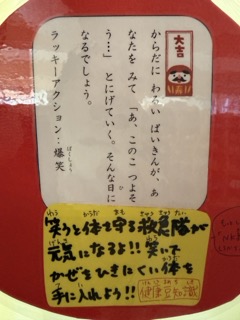 大吉
からだに わるい ばいきんが、あ
なたを みて 「あ、このこ つよそ
う…」 とにげていく。そんな日に
なるでしょう。
ラッキーアクション：爆笑
ばくしょう
笑うと体を守る救急隊が
元気になるよ!! 笑いで
かぜをひきにくい体を
手に入れよう!!
健康豆知識